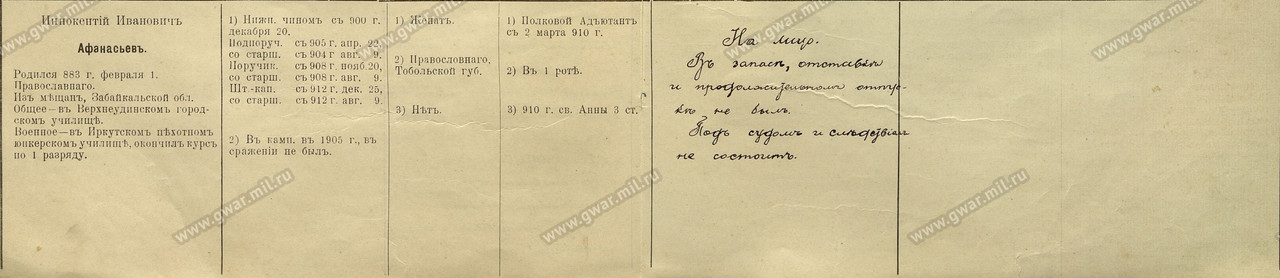 Иннокентій Ивановичъ
Афанасьевъ.
Родился 883 г. февраля 1.
Православнаго.
Изъ мѣщанъ, Забайкальской обл.
Общее—въ Верхнеудинскомъ город-
скомъ училищѣ.
Военное—въ Иркутскомъ пѣхотномъ
юнкерскомъ училищѣ, окончилъ курсъ
по 1 разряду.
1) Нижн. чиномъ съ 900 г.
декабря 20.
Подпоруч. съ 905 г. апр. 22,
со старш. съ 904 г авг. 9.
Поручик. съ 908 г. нояб. 20,
со старш. съ 908 г. авг. 9.
Шт.-кап. съ 912 г. дек. 25,
со старш. съ 912 г. авг. 9.
2) Въ камп. въ 1905 г., въ
сраженіи не былъ.
1) Женатъ.
2) Православнаго,
Тобольской губ.
3) Нѣтъ.
1) Полковой Адъютантъ
съ 2 марта 910 г.
2) Въ 1 ротѣ.
3) 910 г. св. Анны 3 ст.
На лицо.
Въ запасѣ, отставкѣ
и продолжительномъ отпус-
кѣ не былъ.
Подъ судомъ и слѣдствіемъ
не состоитъ.
www.gwar.mil.ru
www.gwar.mil.ru
www.gwar.mil.ru
www.gwar.mil.ru
www.gwar.mil.ru
www.gwar.mil.ru
www.gwar.mil.ru